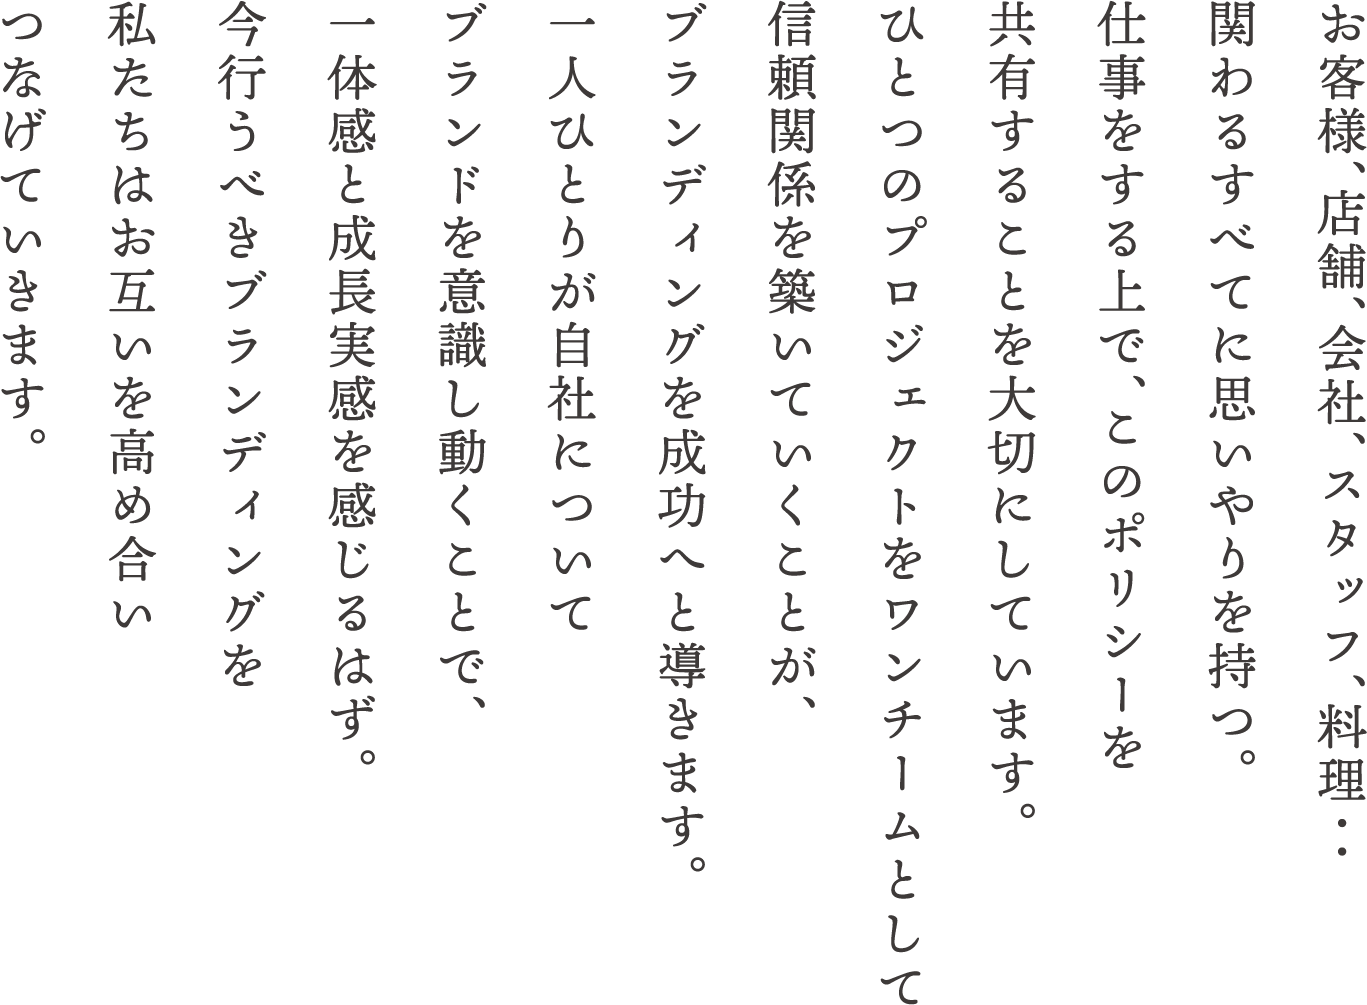 お客様、店舗、会社、スタッフ、料理…
関わるすべてに思いやりを持つ。
仕事をする上で、このポリシーを
共有することを大切にしています。
ひとつのプロジェクトをワンチームとして
信頼関係を築いていくことが、
ブランディングを成功へと導きます。
一人ひとりが自社について
ブランドを意識し動くことで、
一体感と成長実感を感じるはず。
今行うべきブランディングを
私たちはお互いを高め合い
つなげていきます。